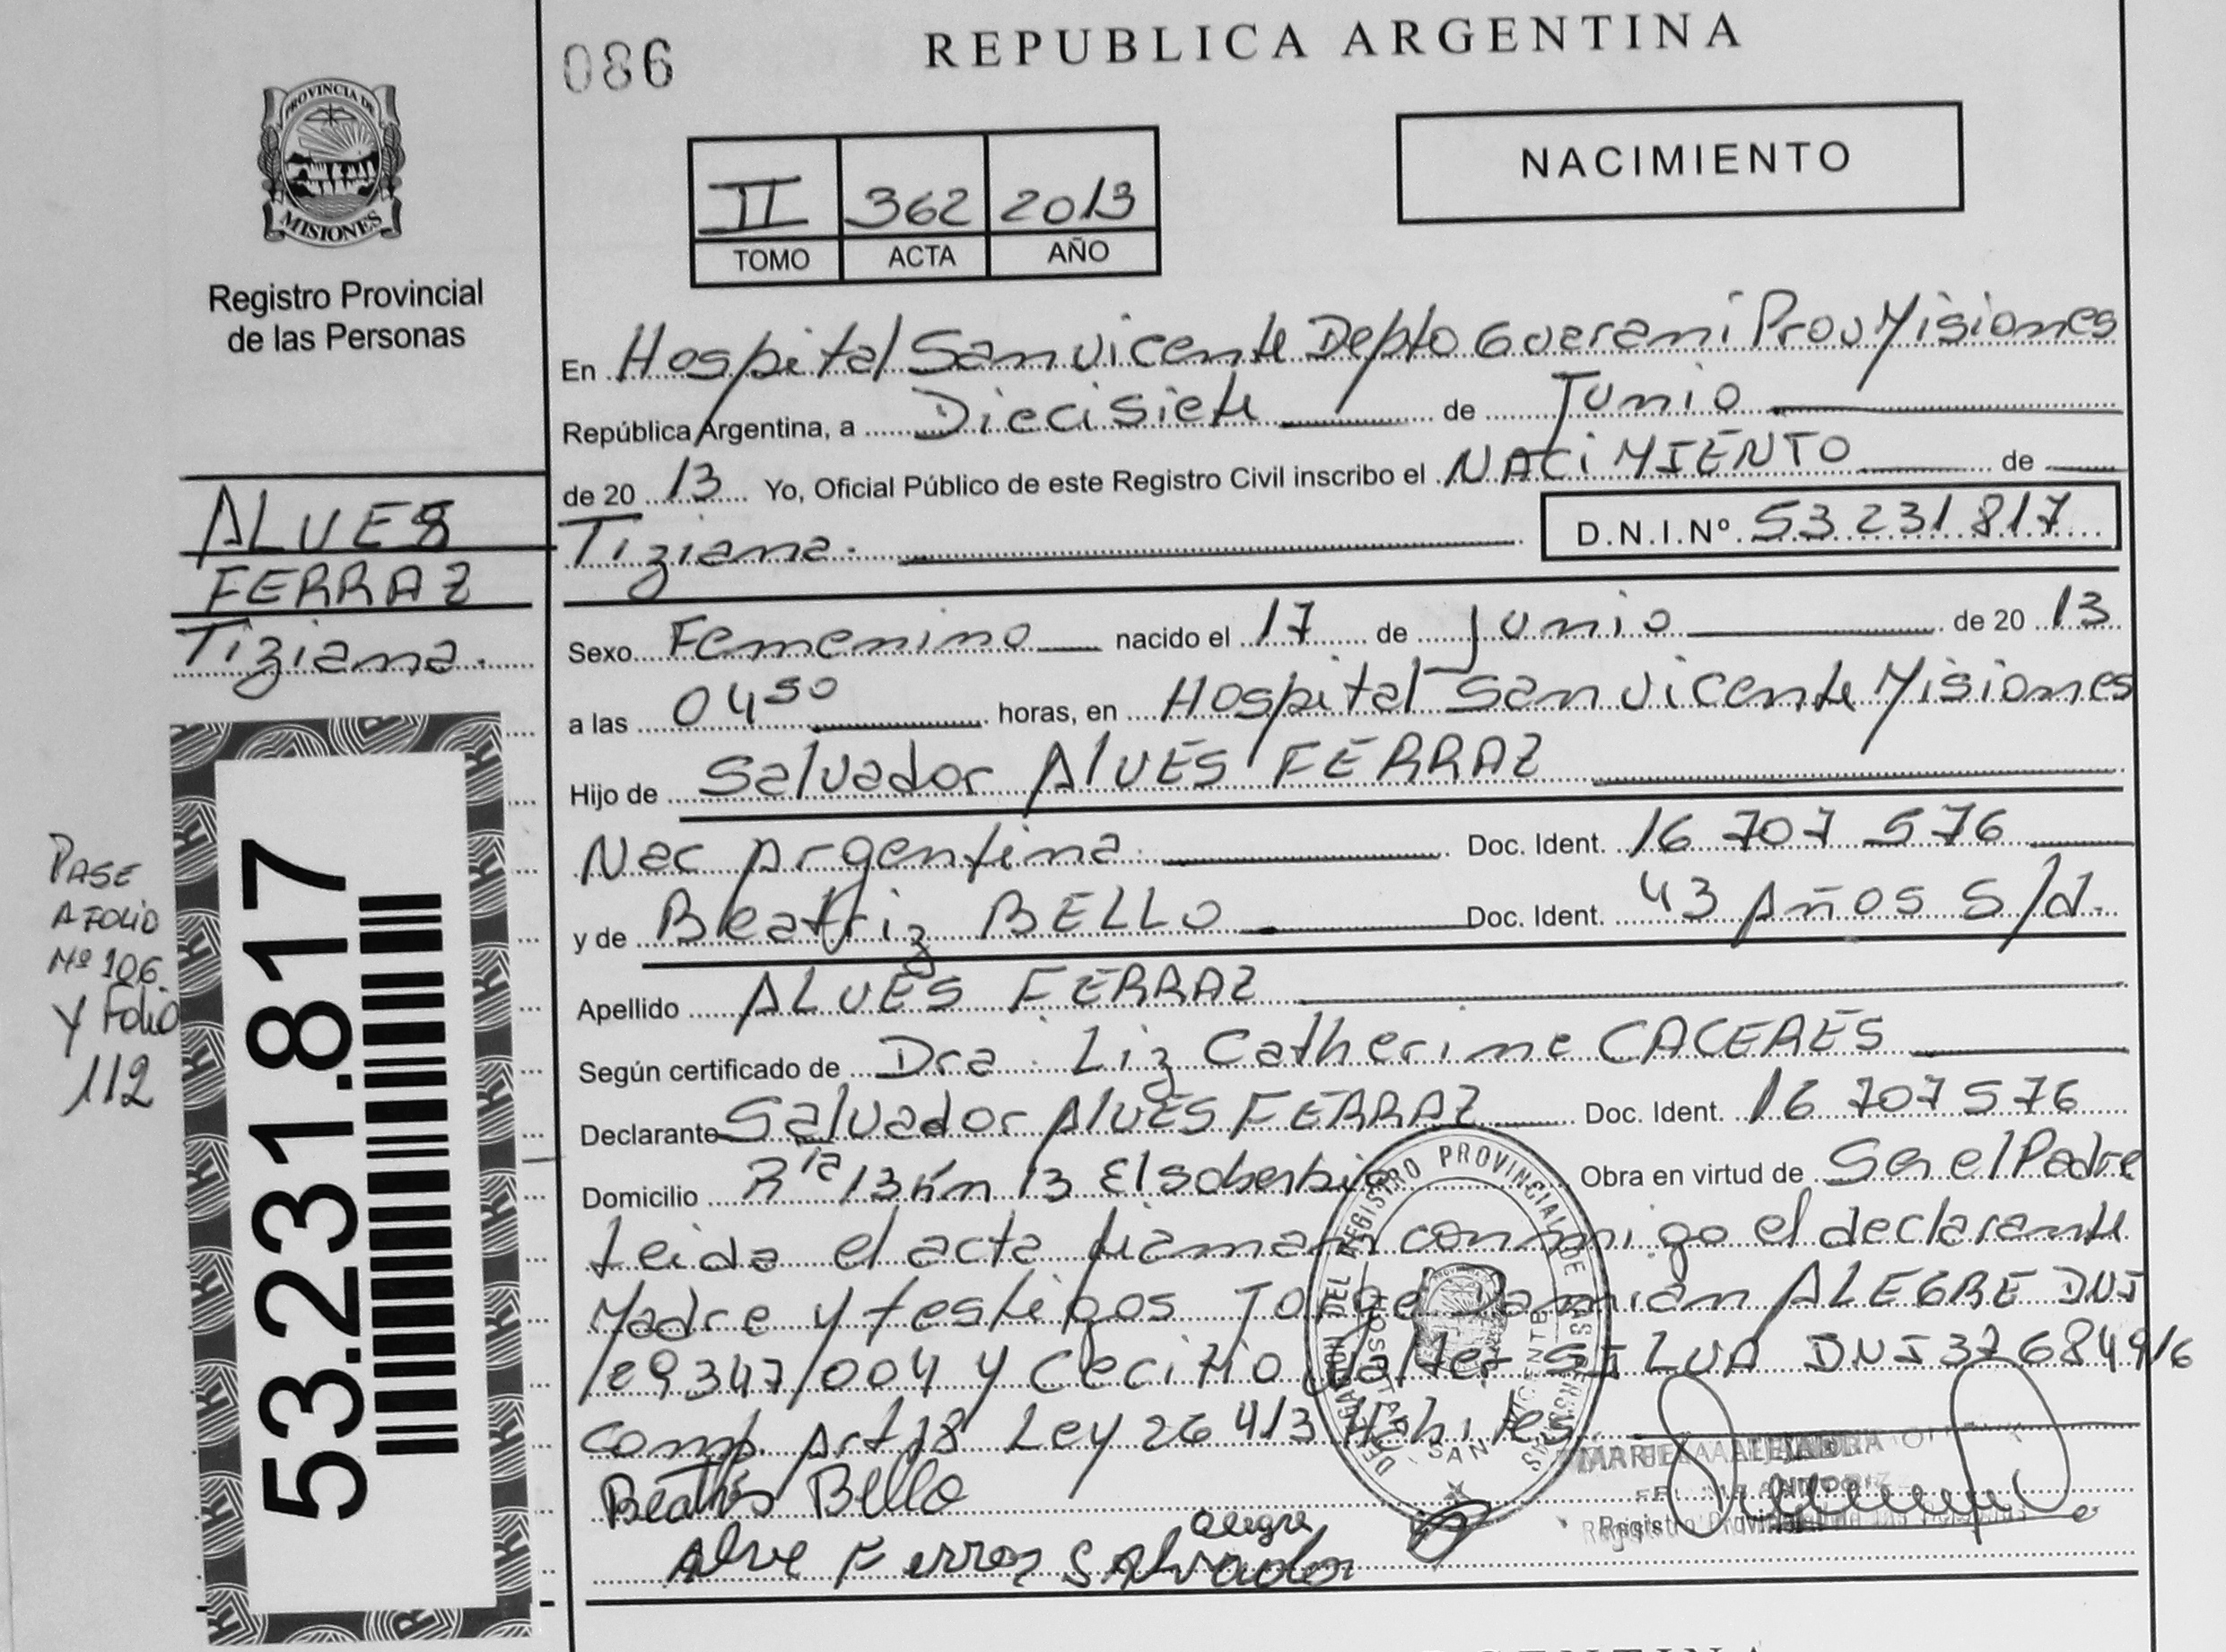 086
REPUBLICA ARGENTINA
PROVINCIA DE
MISIONES
Registro Provincial
de las Personas
II 362 2013
TOMO ACTA AÑO
NACIMIENTO
En Hospital San Vicente Depto Guarani Prov Misiones
República Argentina, a Diecisiete de Junio
de 20 13 Yo, Oficial Público de este Registro Civil inscribo el NACIMIENTO de
Tiziana. D.N.I.Nº 53 231 817
ALVES
FERRAZ
Tiziana.
Sexo Femenino nacido el 17 de Junio de 20 13
a las 04 50 horas, en Hospital San Vicente Misiones
Hijo de Salvador ALVES FERRAZ
Nac Argentina. Doc. Ident. 16 707 576
y de Beatriz BELLO Doc. Ident. 43 Años S/d.
Apellido ALVES FERRAZ
Según certificado de Dra. Liz Catherine CACERES
Declarante Salvador ALVES FERRAZ Doc. Ident. 16 707 576
Domicilio Rta 13 Km 13 El Soberbio Obra en virtud de Ser el Padre
Leida el acta firman conmigo el declarante
Madre y testigos Jorge Damián ALEGRE DNI
29347004 y Cecilio Walter SILVA DNI 37684916
Comp. Art 18 Ley 26 413
Beatris Bello
alegre
Alve Ferras Salvador
53.231.817
PASE
A FOLIO
Nº 106.
Y Folio
112
DELEGACION DEL REGISTRO PROVINCIAL DE LAS PERSONAS
SAN VICENTE
MARIELA ALEJANDRA
Registro Provincial de las Personas